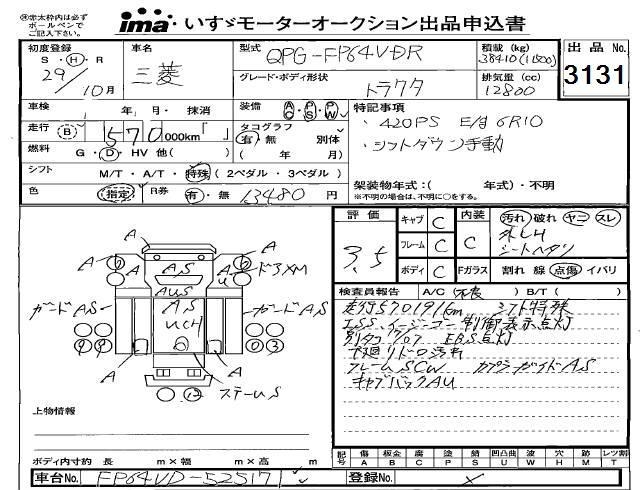 ㊟赤太枠内は必ず
ボールペンで
ご記入下さい。
ima いすゞモーターオークション出品申込書
初度登録
S ・ H ・ R
29/10月
車名
三菱
型式
QPG-FP64VDR
積載 (kg)
38410(11500)
出品No.
3131
グレード・ボディ形状
トラクタ
排気量 (cc)
12800
車検
年 月・ 抹消
装備
AC PS PW
特記事項
・420PS E/g 6R10
・シフトダウン手動
走行 B 570,000km「 」
タコグラフ
有・無 別体
( 年 月)
燃料 G・D・HV 他( )
シフト M/T・A/T・特殊 (2ペダル・3ペダル)
架装物年式:( 年式)・不明
※不明の場合は、不明に○をする。
色 指定 R券 有・無 13480 円
評価
3.5
キャブ C
フレーム C
ボディ C
内装 C
Fガラス
汚れ 破れ ヤニ スレ
シートヘタリ
割れ 線 点傷 イバリ
検査員報告 A/C(不良 ) B/T( )
走行570191km シフト特殊
ISS、イージーゴー制御表示点灯
EBS点灯
フレームSCW カプラガイドAS
キャブバックAU
A
A
A
AS
AUS
AS
UCH
A
U
ドアXM
ガードAS
ガードAS
A
A
A
ステームS
上物情報
ボディ内寸約 長 m×幅 m×高 m
記号
傷 A
板金 B
腐 C
塗 P
錆 S
凹凸曲 U
波 W
穴 H
欠 M
レツ割 T
車台No. FP64VD-52517
登録No.